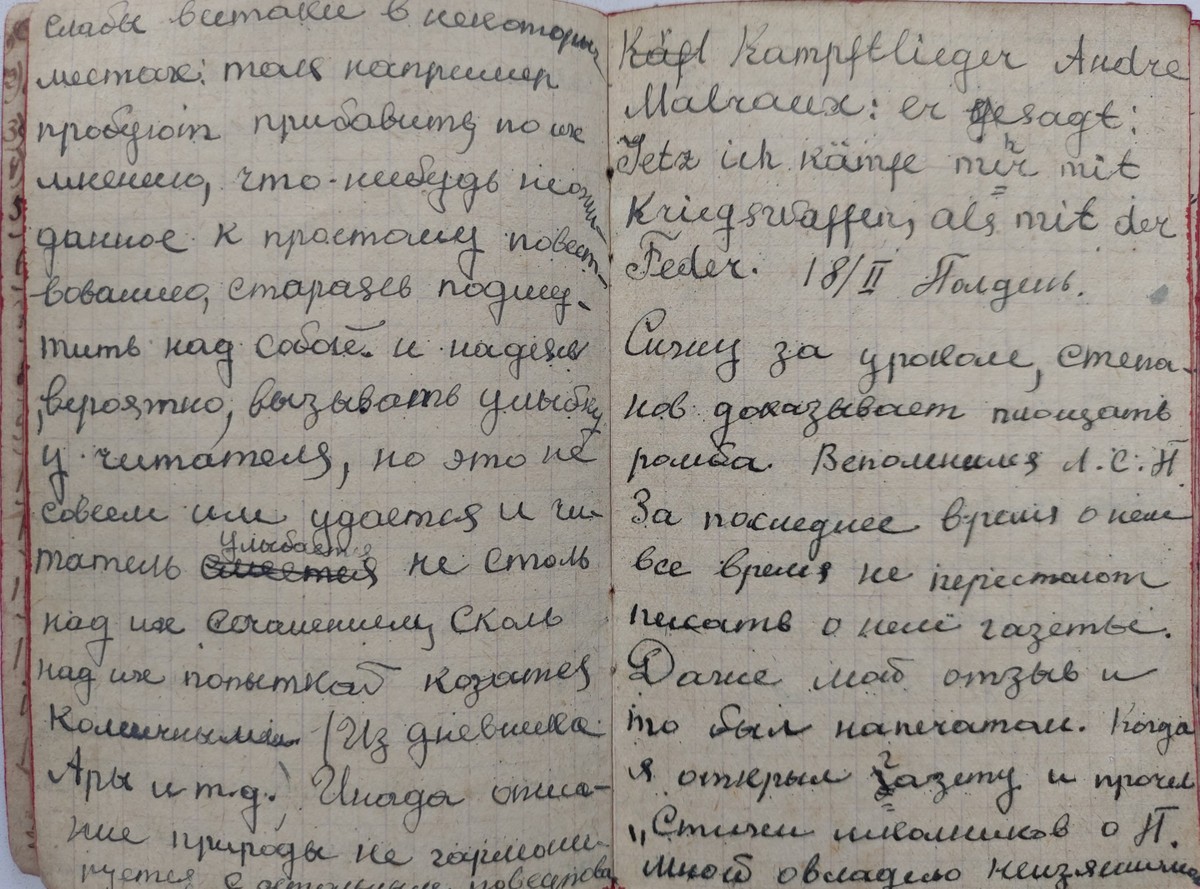 слабы всетаки в некоторых
местах: так например
пробуют прибавить по их
мнению, что-нибудь неожи
данное к простому повест-
вованию, стараясь подшу-
тить над собой и надеясь
, вероятно, вызывать улыбку
у читателя, но это не
совсем им удается и чи-
татель улыбается не столь
над их сочинением, сколь
над их попыткой козатся
комичными (Из дневника
Ары и т.д.) Иногда описа-
ние природы не гармони-
руется с остальным повествова
Kampftlieger Andre
Malraux: er gesagt:
Jetz ich kämpfe mir mit
Kriegswaffen, als mit der
Feder. 18/II Полдень.
Сижу за уроком, Степа-
нов доказывает площать
ромба. Вспомнился А.С.П.
За последнее время о нем
все время не перестают
писать о нем газеты.
Даже мой отзыв и
то был напечатан. Когда
я открыл газету и прочел
„Стихи школников о П.
мной овладело неизъяснимо